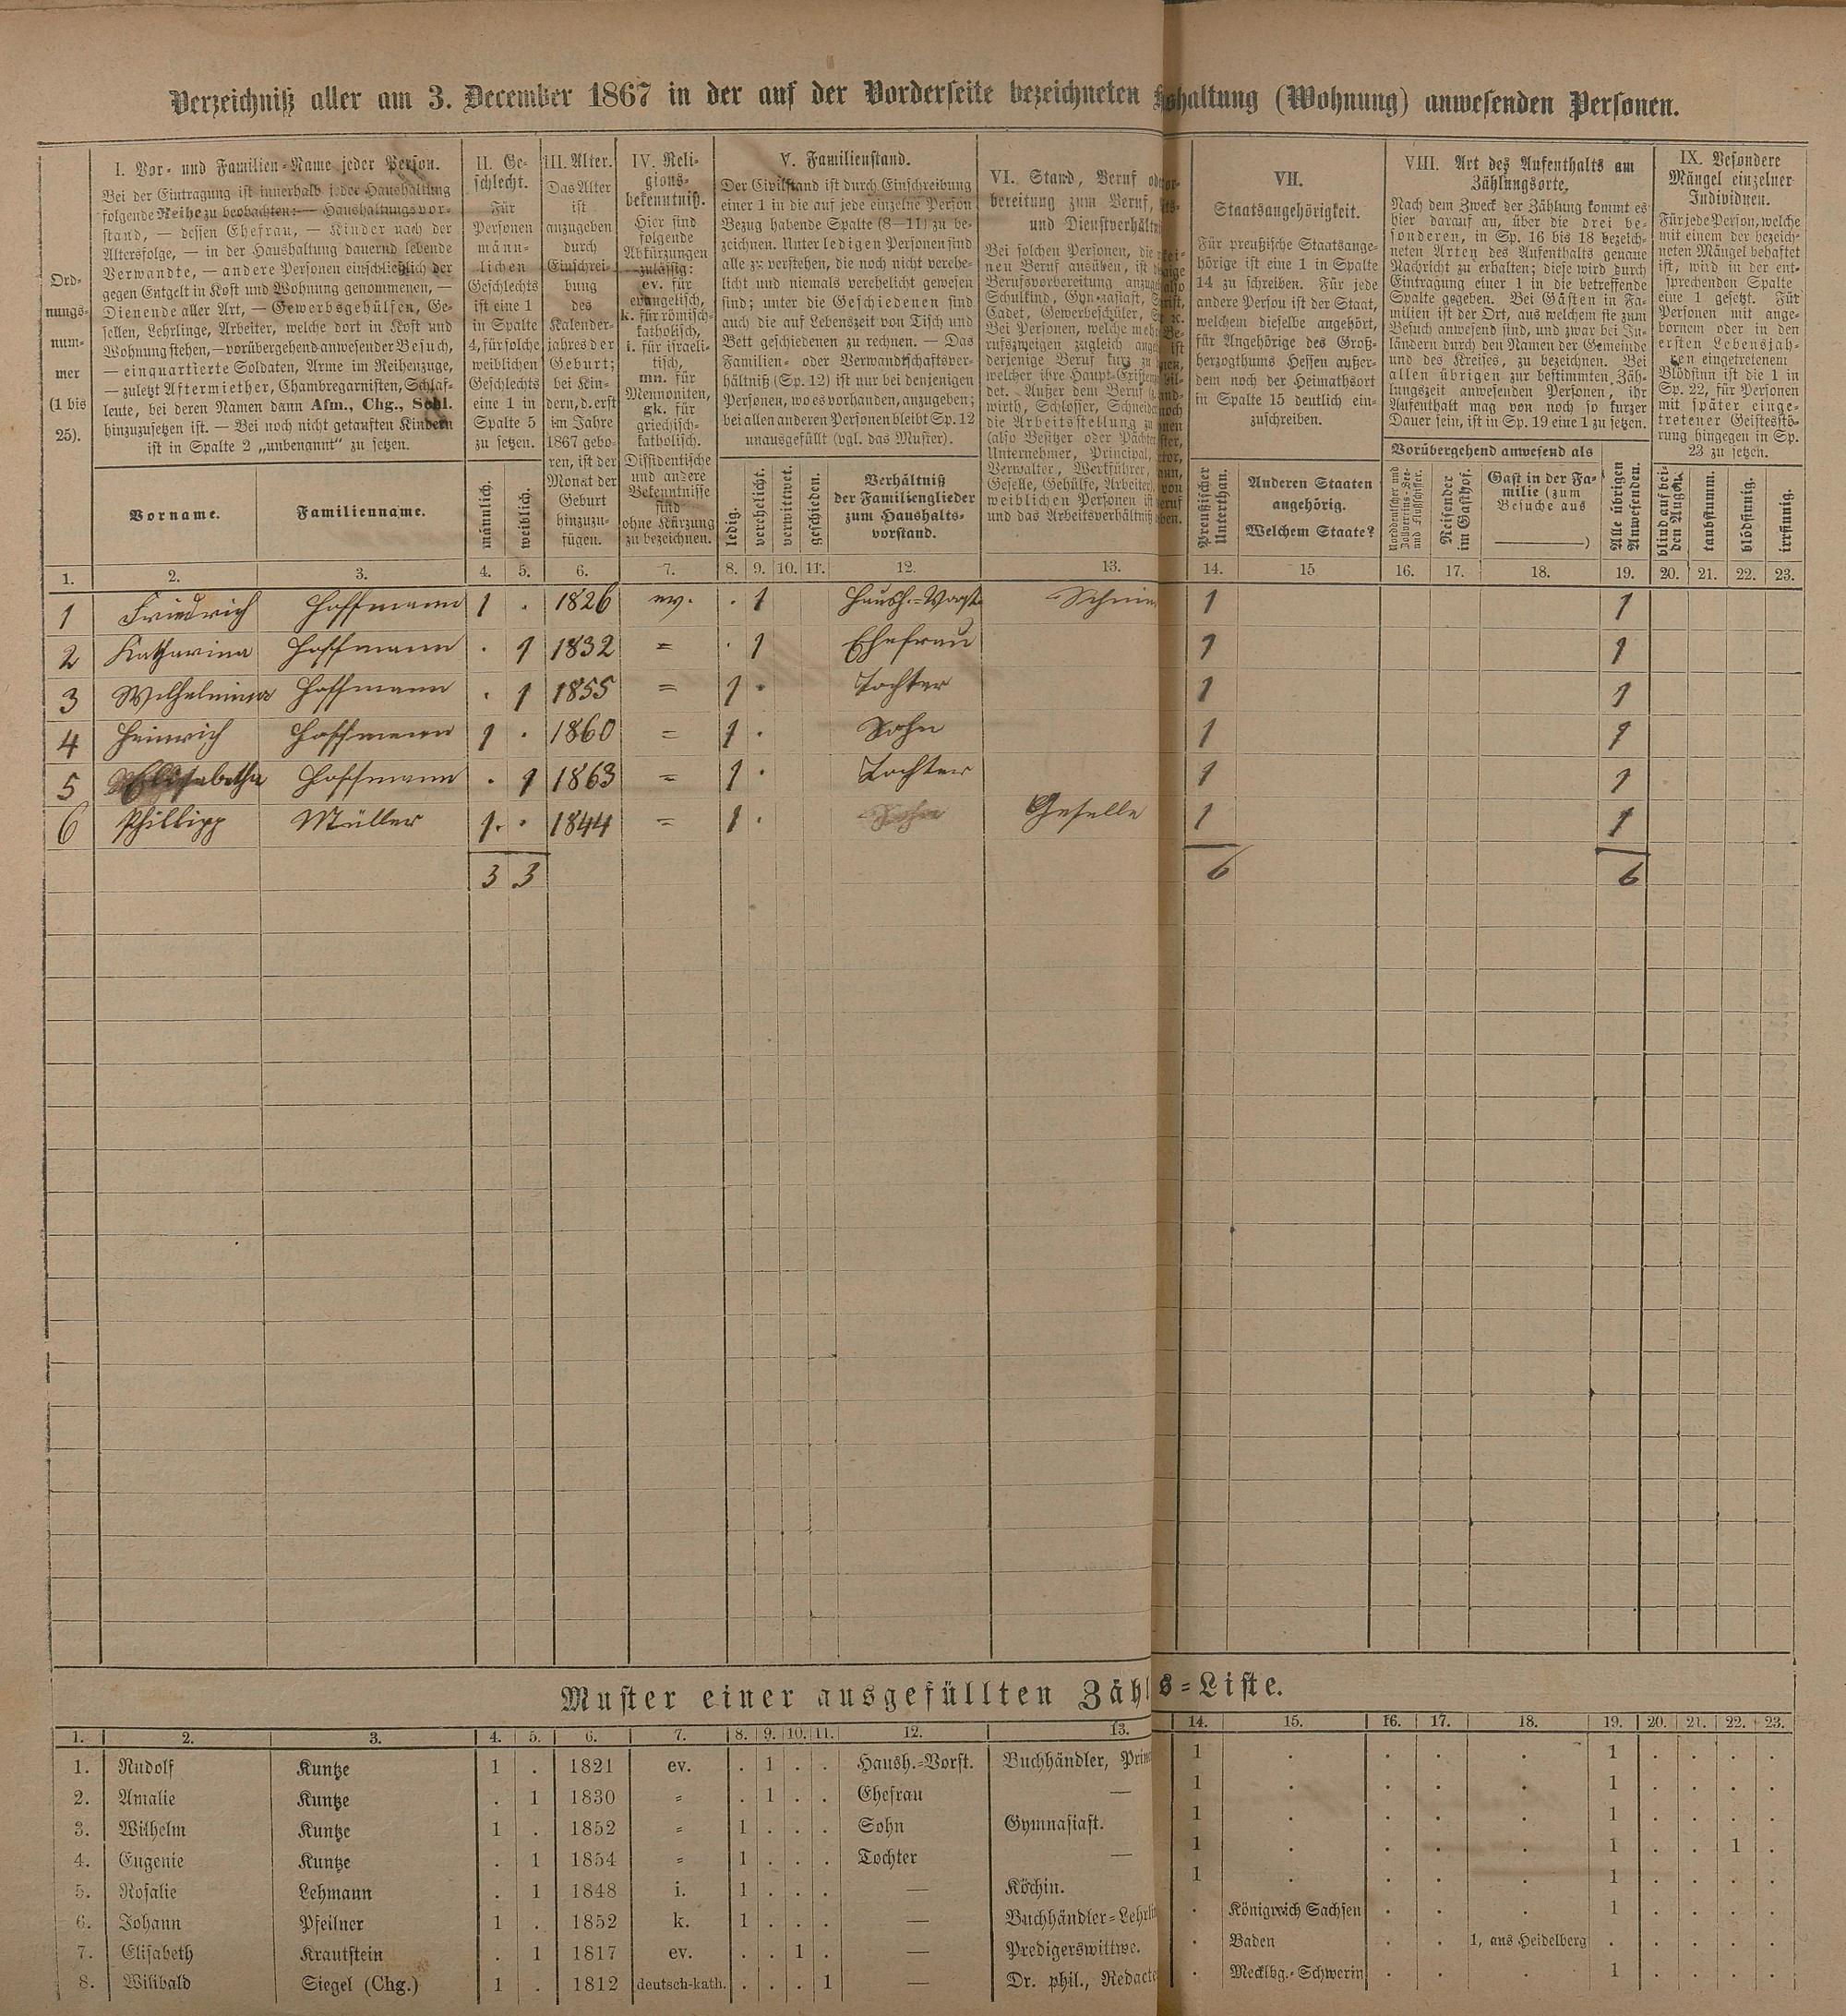 Verzeichniß aller am 3. December 1867 in der auf der Vorderseite bezeichneten haltung (Wohnung) anwesenden Personen.
Ord-
nungs-
num-
mer
(1 bis
25).
I. Vor- und Familien-Name jeder Person.
Bei der Eintragung ist innerhalb jeder Haushaltung
folgende Reihe zu beobachten: — Haushaltungsvor-
stand, — dessen Ehefrau, — Kinder nach der
Altersfolge, — in der Haushaltung dauernd lebende
Verwandte, — andere Personen einschließlich der
gegen Entgelt in Kost und Wohnung genommenen, —
Dienende aller Art, — Gewerbsgehülfen, Ge-
sellen, Lehrlinge, Arbeiter, welche dort in Kost und
Wohnung stehen, — vorübergehend anwesender Besuch,
— einquartierte Soldaten, Arme im Reihenzuge,
— zuletzt Aftermiether, Chambregarnisten, Schlaf-
leute, bei deren Namen dann Afm., Chg., Schl.
hinzuzusetzen ist. — Bei noch nicht getauften Kindern
ist in Spalte 2 „unbenannt“ zu setzen.
Vorname.
Familienname.
II. Ge-
schlecht.
Für
Personen
männ-
lichen
Geschlechts
ist eine 1
in Spalte
4, für solche
weiblichen
Geschlechts
eine 1 in
Spalte 5
zu setzen.
männlich.
weiblich.
III. Alter.
Das Alter
ist
anzugeben
durch
Einschrei-
bung
des
Kalender-
jahres der
Geburt;
bei Kin-
dern, d. erst
im Jahre
1867 gebo-
ren, ist der
Monat der
Geburt
hinzuzu-
fügen.
IV. Reli-
gions-
bekenntniß.
Hier sind
folgende
Abkürzungen
zulässig:
ev. für
evangelisch,
k. für römisch-
katholisch,
i. für israeli-
tisch,
mn. für
Mennoniten,
gk. für
griechisch-
katholisch.
Dissidentische
und andere
Bekenntnisse
sind
ohne Kürzung
zu bezeichnen.
V. Familienstand.
Der Civilstand ist durch Einschreibung
einer 1 in die auf jede einzelne Person
Bezug habende Spalte (8—11) zu be-
zeichnen. Unter ledigen Personen sind
alle zu verstehen, die noch nicht verehe-
licht und niemals verehelicht gewesen
sind; unter die Geschiedenen sind
auch die auf Lebenszeit von Tisch und
Bett geschiedenen zu rechnen. — Das
Familien- oder Verwandtschaftsver-
hältniß (Sp. 12) ist nur bei denjenigen
Personen, wo es vorhanden, anzugeben;
bei allen anderen Personen bleibt Sp. 12
unausgefüllt (vgl. das Muster).
ledig.
verehelicht.
verwittwet.
geschieden.
Verhältniß
der Familienglieder
zum Haushalts-
vorstand.
VI. Stand, Beruf
bereitung zum Beruf,
und
Bei solchen Personen, die
nen Beruf ausüben, ist
Berufsvorbereitung
Schulkind, Gymnasiast,
Cadet, Gewerbeschüler,
Bei Personen, welche
rufszweigen zugleich
derjenige Beruf kurz zu
welcher ihre
det. Außer dem Beruf
wirth, Schlosser,
die Arbeitsstellung zu
(also Besitzer oder
Unternehmer, Principal,
Verwalter, Werkführer,
Geselle, Gehülfe,
weiblichen Personen ist
und das Arbeitsverhältniß
VII.
Staatsangehörigkeit.
Für preußische Staatsange-
hörige ist eine 1 in Spalte
14 zu schreiben. Für jede
andere Person ist der Staat,
welchem dieselbe angehört,
für Angehörige des Groß-
herzogthums Hessen außer-
dem noch der Heimathsort
in Spalte 15 deutlich ein-
zuschreiben.
Preußischer
Unterthan.
Anderen Staaten
angehörig.
Welchem Staate?
VIII. Art des Aufenthalts am
Zählungsorte.
Nach dem Zweck der Zählung kommt es
hier darauf an, über die drei be-
sonderen, in Sp. 16 bis 18 bezeich-
neten Arten des Aufenthalts genaue
Nachricht zu erhalten; diese wird durch
Eintragung einer 1 in die betreffende
Spalte gegeben. Bei Gästen in Fa-
milien ist der Ort, aus welchem sie zum
Besuch anwesend sind, und zwar bei In-
ländern durch den Namen der Gemeinde
und des Kreises, zu bezeichnen. Bei
allen übrigen zur bestimmten Zäh-
lungszeit anwesenden Personen, ihr
Aufenthalt mag von noch so kurzer
Dauer sein, ist in Sp. 19 eine 1 zu setzen.
Vorübergehend anwesend als
Norddeutscher und
Zollvereins-See-
und Flußschiffer.
Reisender
im Gasthof.
Gast in der Fa-
milie (zum
Besuche aus
)
Alle übrigen
Anwesenden.
IX. Besondere
Mängel einzelner
Individuen.
Für jede Person, welche
mit einem der bezeich-
neten Mängel behaftet
ist, wird in der ent-
sprechenden Spalte
eine 1 gesetzt. Für
Personen mit ange-
bornem oder in den
ersten Lebensjah-
ren eingetretenem
Blödsinn ist die 1 in
Sp. 22, für Personen
mit später einge-
tretener Geistesstö-
rung hingegen in Sp.
23 zu setzen.
blind auf bei-
den Augen.
taubstumm.
blödsinnig.
irrsinnig.
1. 2. 3. 4. 5. 6. 7. 8. 9. 10. 11. 12. 13. 14. 15 16. 17. 18. 19. 20. 21. 22. 23.
1 Friedrich Hoffmann 1 . 1826 ev. . 1 Haush.-Vorst. 1 1
2 Katharina Hoffmann . 1 1832 = . 1 Ehefrau 1 1
3 Wilhelmina Hoffmann . 1 1855 = 1 . Tochter 1 1
4 Heinrich Hoffmann 1 . 1860 = 1 . Sohn 1 1
5 Elisabetha Hoffmann . 1 1863 = 1 . Tochter 1 1
6 Phillipp Müller 1 . 1844 = 1 . Geselle 1 1
3 3 6 6
Muster einer ausgefüllten Zähl s-Liste.
1. 2. 3. 4. 5. 6. 7. 8. 9. 10. 11. 12. 13. 14. 15. 16. 17. 18. 19. 20. 21. 22. 23.
1. Rudolf Kuntze 1 . 1821 ev. . 1 . . Haush.-Vorst. Buchhändler, 1 . . . . 1 . . . .
2. Amalie Kuntze . 1 1830 = . 1 . . Ehefrau — 1 . . . . 1 . . . .
3. Wilhelm Kuntze 1 . 1852 = 1 . . . Sohn Gymnasiast. 1 . . . . 1 . . . .
4. Eugenie Kuntze . 1 1854 = 1 . . . Tochter — 1 . . . . 1 . . 1 .
5. Rosalie Lehmann . 1 1848 i. 1 . . . — Köchin. 1 . . . . 1 . . . .
6. Johann Pfeilner 1 . 1852 k. 1 . . . — Buchhändler-Lehrli . Königreich Sachsen . . . 1 . . . .
7. Elisabeth Krautstein . 1 1817 ev. . . 1 . — Predigerswittwe. . Baden . . 1, aus Heidelberg . . . . .
8. Wilibald Siegel (Chg.) 1 . 1812 deutsch-kath. . . . 1 — Dr. phil., Redacte . Mecklbg.-Schwerin . . . 1 . . . .